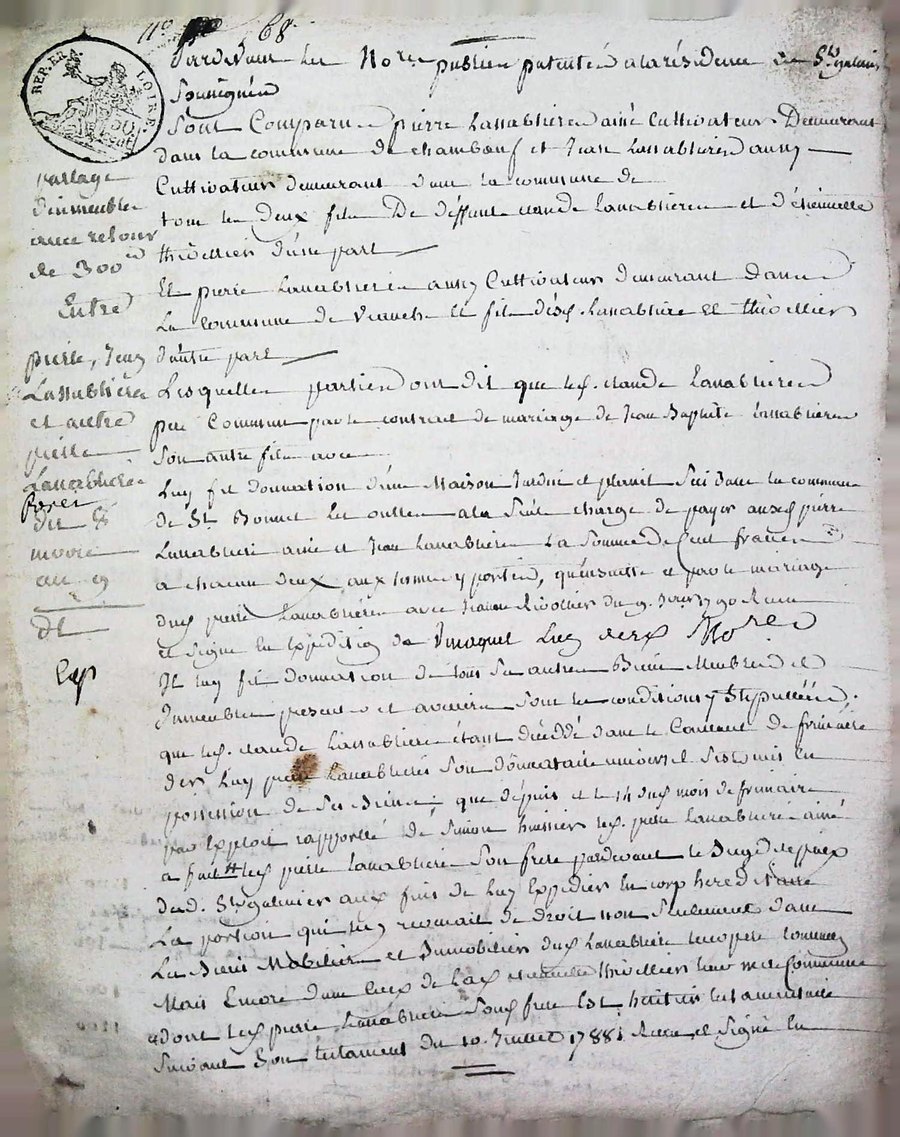 n° 68
REP. FR. LOIRE
Pardevant les Nores publics patentés a la résidence de St galmier
Soussignés
Sont Comparus pierre Lassablieres ainé Cultivateur Demeurant
dans la commune de chambœuf et Jean Lassablieres aussy
Cultivateur demeurant dans la commune de
tous les deux fils De deffunt claude Lassabliere et d'étiennette
thiollier d'une part
Et pierre Lassabliere aussy Cultivateur demeurant dans
La commune de et fils desd. Lassabliere et thiollier
d'autre part
Lesquelles parties ont dit que led. claude Lassabliere
pere Commun par le contrat de mariage de Jean Baptiste Lassabliere
Son autre fils avec
Luy fit donnation d'une Maison Jardin et Sis dans la commune
de St Bonnet les oulles a la Seule charge de payer auxd. pierre
Lassabliere ainé et Jean Lassabliere La Somme de Cent francs
a chacun deux aux termes y portés, qu'ensuitte et par le mariage
dud. pierre Lassabliere avec Rivollier du 9. 1790 Recu
et Signé en Expédition de L'un des Nores
Il luy fit donnation de tous Ses autres Biens Meubles et
Immeubles presents et avenirs Sous les conditions y Stipullées.
que led. claude Lassabliere étant décédé dans le Courant de frimaire
der Luy pierre Lassabliere Son donnataire universel s'est mis en
possession de Ses Biens; que depuis et le 14 dud. mois de frimaire
par Exploit rapporté de Simon huissier led. pierre Lassabliere ainé
a fait led. pierre Lassabliere Son frere pardevant le Juge de paix
dud. St galmier aux fins de Luy Expedier En corp hereditaire
La portion qui luy revenait de droit non Seulement dans
Les Biens Mobiliers et Immobiliers dud. Lassabliere pere Commun
Mais Encore dans Ceux de Lad. étiennette thiollier leur mere Commune
dont led. pierre Lassabliere Sond. frere Est héritier testamentaire
Suivant Son testament du 10. Juillet 1788. Recu et Signé En
partage
d'immeubles
avec retour
de 300
Entre
pierre, Jean
Lassabliere
et autre
pierre
Lassabliere
du 8
au 9
Exp